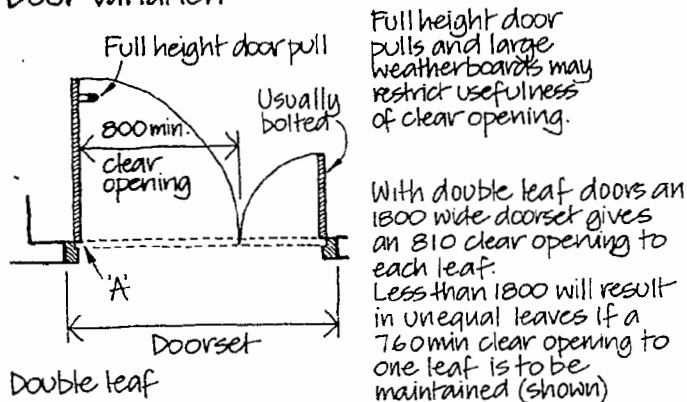 Door variation
Full height door pull
800 min.
clear
opening
Usually
bolted
'A'
Doorset
Double leaf
Full height door
pulls and large
weatherboards may
restrict usefulness
of clear opening.
With double leaf doors an
1800 wide doorset gives
an 810 clear opening to
each leaf.
Less than 1800 will result
in unequal leaves if a
760 min clear opening to
one leaf is to be
maintained (shown)